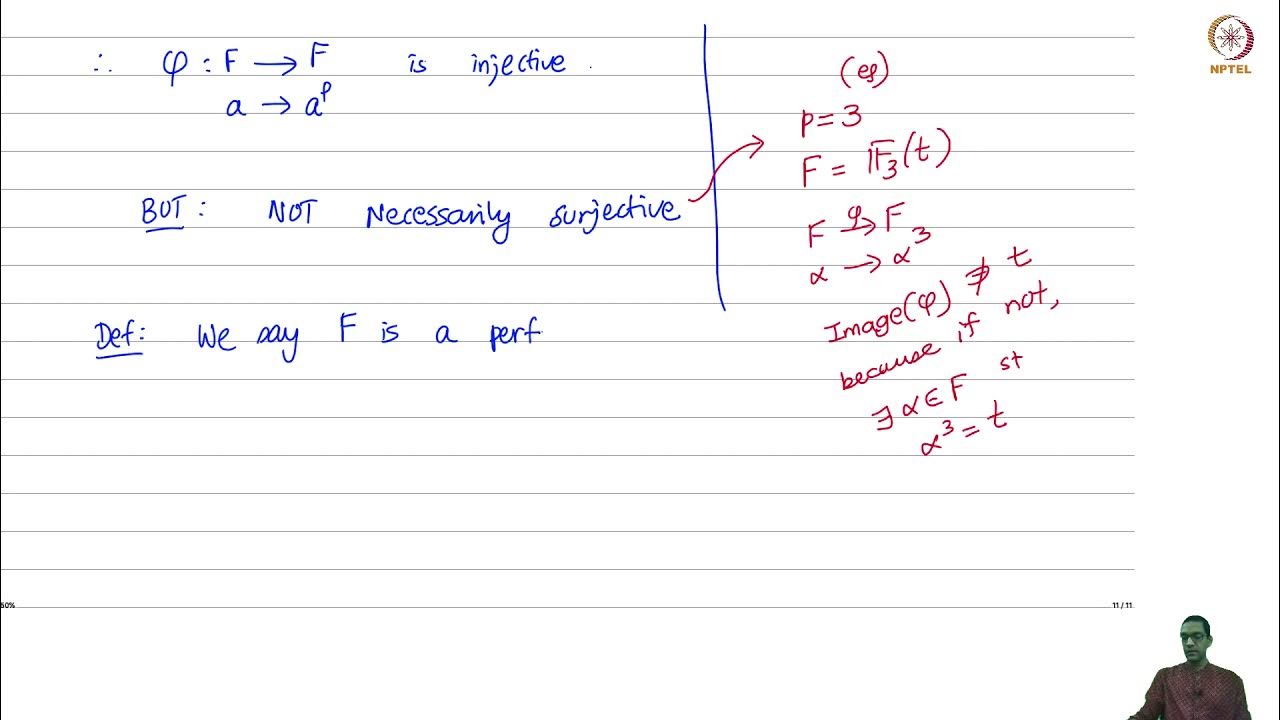 ∴ φ : F → F is injective.
a → a^p
BUT : NOT Necessarily surjective
Def: We say F is a perf
(eg)
p = 3
F = 𝔽₃(t)
F →^φ F
α → α³
Image(φ) ∌ t
because if not,
∃ α ∈ F st
α³ = t
NPTEL
50%
11 / 11